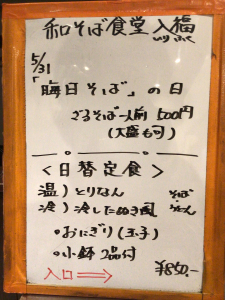 和そば食堂 入福
いりふく
5/31
「晦日そば」の日
ざるそば一人前 500円
(大盛も可)
<日替定食>
温)とりなん そば
冷)冷したぬき風 うどん
・おにぎり(玉子)
・小鉢2品付
入口⇒ ¥850.-